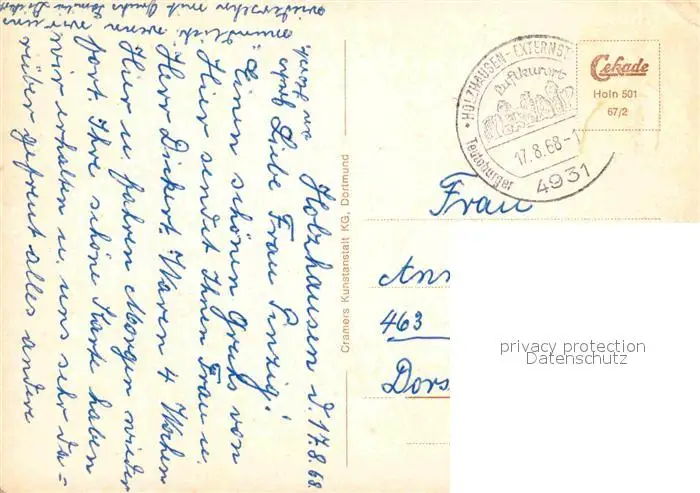 Holzhausen d. 17.8.68.
Liebe Frau
Einen schönen Gruß von
Hier sendet Ihnen Frau u.
Herr Dickert. Waren 4 Wochen
Hier u. fahren Morgen wieder
fort. Ihre schöne Karte haben
wir erhalten u. uns sehr da-
rüber gefreut alles andere
mündlich wenn wir uns
wiedersehn mit Gruß Familie Dickert
Cramers Kunstanstalt KG, Dortmund
HOLZHAUSEN-EXTERNST
Luftkurort
17.8.68-1
Teutoburger
4931
Cekade
Holn 501
67/2
Frau
Ann
463
Dors
privacy protection
Datenschutz